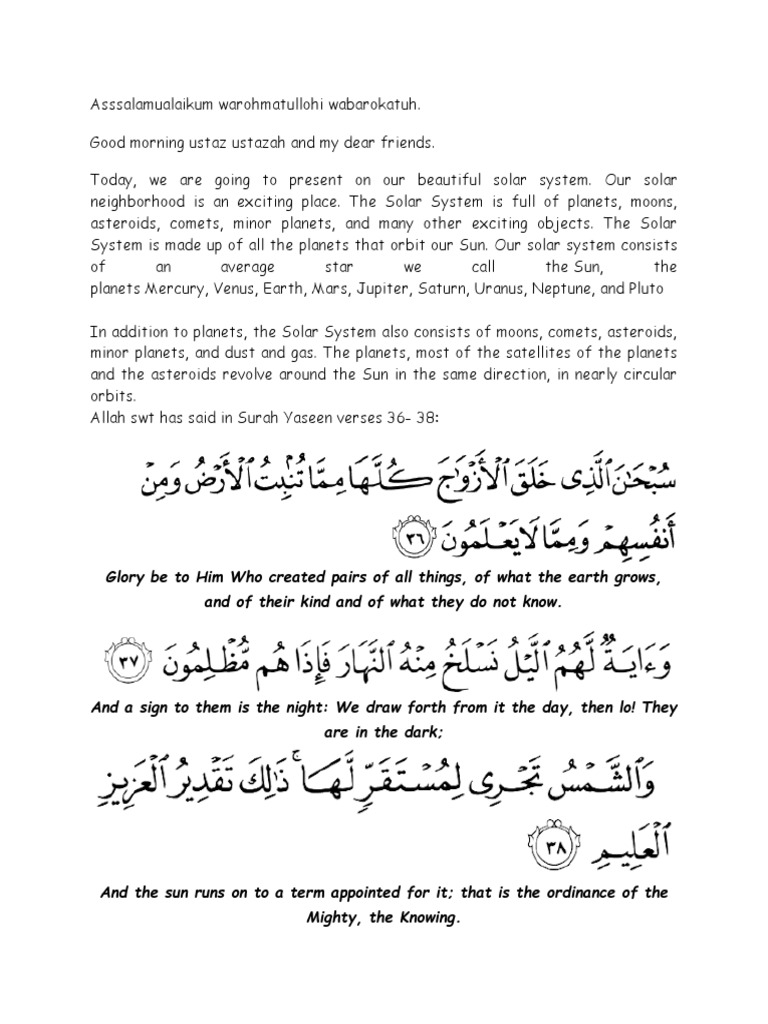 Asssalamualaikum warohmatullohi wabarokatuh.
Good morning ustaz ustazah and my dear friends.
Today, we are going to present on our beautiful solar system. Our solar
neighborhood is an exciting place. The Solar System is full of planets, moons,
asteroids, comets, minor planets, and many other exciting objects. The Solar
System is made up of all the planets that orbit our Sun. Our solar system consists
of an average star we call the Sun, the
planets Mercury, Venus, Earth, Mars, Jupiter, Saturn, Uranus, Neptune, and Pluto
In addition to planets, the Solar System also consists of moons, comets, asteroids,
minor planets, and dust and gas. The planets, most of the satellites of the planets
and the asteroids revolve around the Sun in the same direction, in nearly circular
orbits.
Allah swt has said in Surah Yaseen verses 36- 38:
سُبْحَـٰنَ ٱلَّذِى خَلَقَ ٱلْأَزْوَٰجَ كُلَّهَا مِمَّا تُنۢبِتُ ٱلْأَرْضُ وَمِنْ
أَنفُسِهِمْ وَمِمَّا لَا يَعْلَمُونَ ٣٦
Glory be to Him Who created pairs of all things, of what the earth grows,
and of their kind and of what they do not know.
وَءَايَةٌ لَّهُمُ ٱلَّيْلُ نَسْلَخُ مِنْهُ ٱلنَّهَارَ فَإِذَا هُم مُّظْلِمُونَ ٣٧
And a sign to them is the night: We draw forth from it the day, then lo! They
are in the dark;
وَٱلشَّمْسُ تَجْرِى لِمُسْتَقَرٍّ لَّهَا ۚ ذَٰلِكَ تَقْدِيرُ ٱلْعَزِيزِ
ٱلْعَلِيمِ ٣٨
And the sun runs on to a term appointed for it; that is the ordinance of the
Mighty, the Knowing.